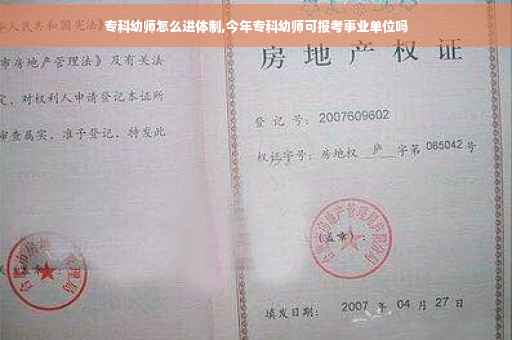 专科幼师怎么进体制,今年专科幼师可报考事业单位吗
人民共和国宪法》
市房地产管理法》及有关法
定，对权利人申请登记本证所
审查属实，准予登记，特发此
房地产权证
登记号：2007609602
权证字号：房地权 庐 字第 065042 号
(盖章)：
填发日期：2007 年 04 月 27 日